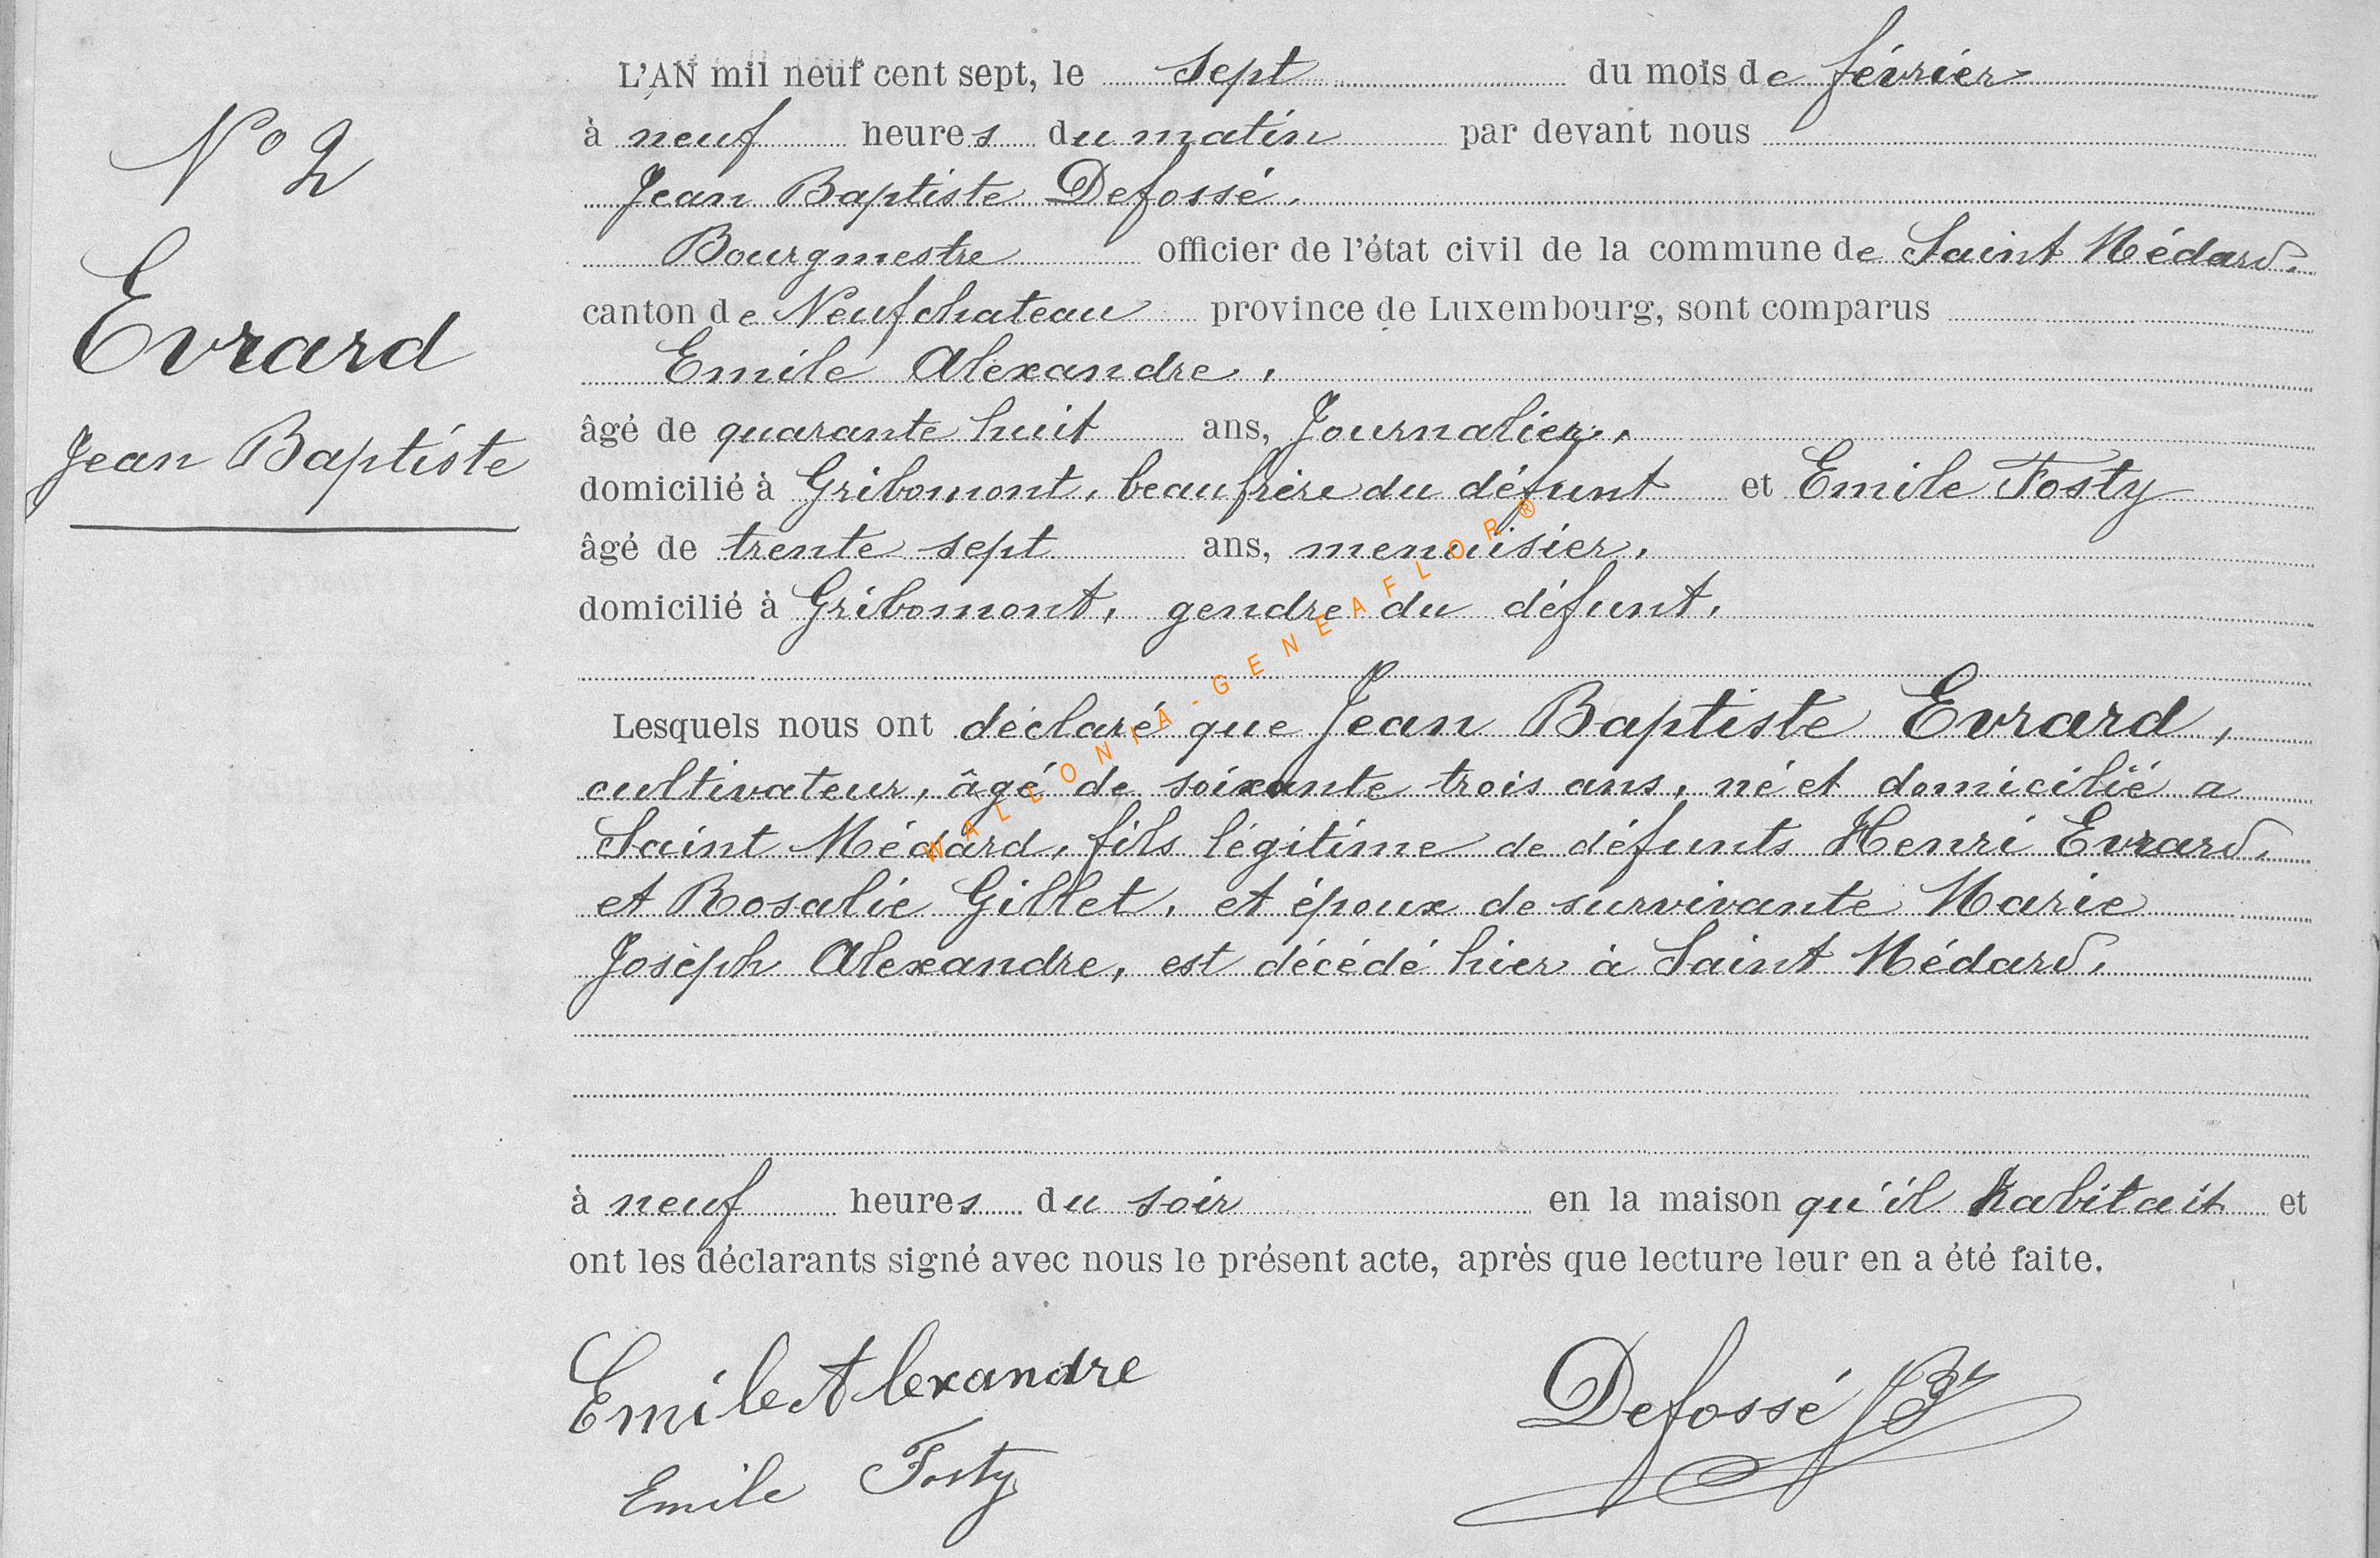 N° 2
Evrard
Jean Baptiste
L'AN mil neuf cent sept, le sept du mois de février
à neuf heures du matin par devant nous
Jean Baptiste Defossé,
Bourgmestre officier de l'état civil de la commune de Saint Médard,
canton de Neufchateau province de Luxembourg, sont comparus
Emile Alexandre,
âgé de quarante huit ans, Journalier,
domicilié à Gribomont, beau frère du défunt et Emile Fosty
âgé de trente sept ans, menuisier,
domicilié à Gribomont, gendre du défunt,
Lesquels nous ont déclaré que Jean Baptiste Evrard,
cultivateur, âgé de soixante trois ans, né et domicilié a
Saint Médard, fils légitime de défunts Henri Evrard,
et Rosalie Gillet, et époux de survivante Marie
Joseph Alexandre, est décédé hier à Saint Médard,
à neuf heures du soir en la maison qu'il habitait et
ont les déclarants signé avec nous le présent acte, après que lecture leur en a été faite.
Emile Alexandre
Defossé JB
Emile Fosty
WALLONIA-GENEAFLOR®